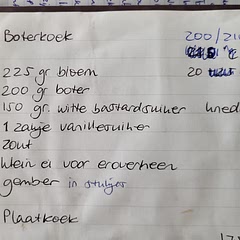 Boterkoek 200/210
225 gr bloem 20
200 gr boter
150 gr. witte bastardsuiker kned
1 zakje vanillesuiker
zout
klein ei voor eroverheen
gember in stukjes
Plaatkoek